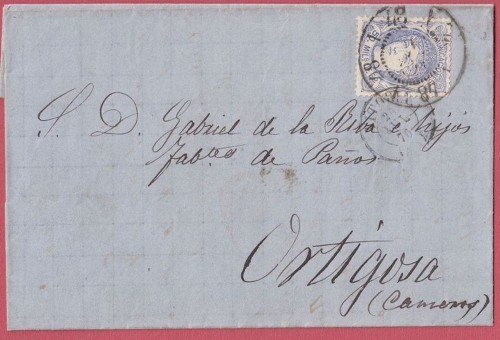 S. D. Gabriel de la Riba e hijos
Fab.tes de Paños
Ortigosa
(Cameros)